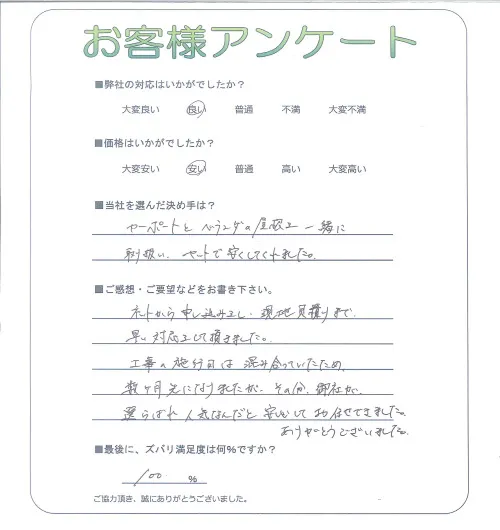 お客様アンケート
■弊社の対応はいかがでしたか？
大変良い 良い 普通 不満 大変不満
■価格はいかがでしたか？
大変安い 安い 普通 高い 大変高い
■当社を選んだ決め手は？
カーポートと ベランダの屋根を 一緒に
取扱い、セットで安くしてくれました。
■ご感想・ご要望などをお書き下さい。
ネットから申し込みをし、現地見積りまで、
早い対応をして頂きました。
工事の施行日は 混み合っていたため、
数ヶ月先になりましたが、その分、御社が、
選らばれ 人気なんだと 安心して お任せできました。
ありがとうございました。
■最後に、ズバリ満足度は何％ですか？
100 ％
ご協力頂き、誠にありがとうございました。